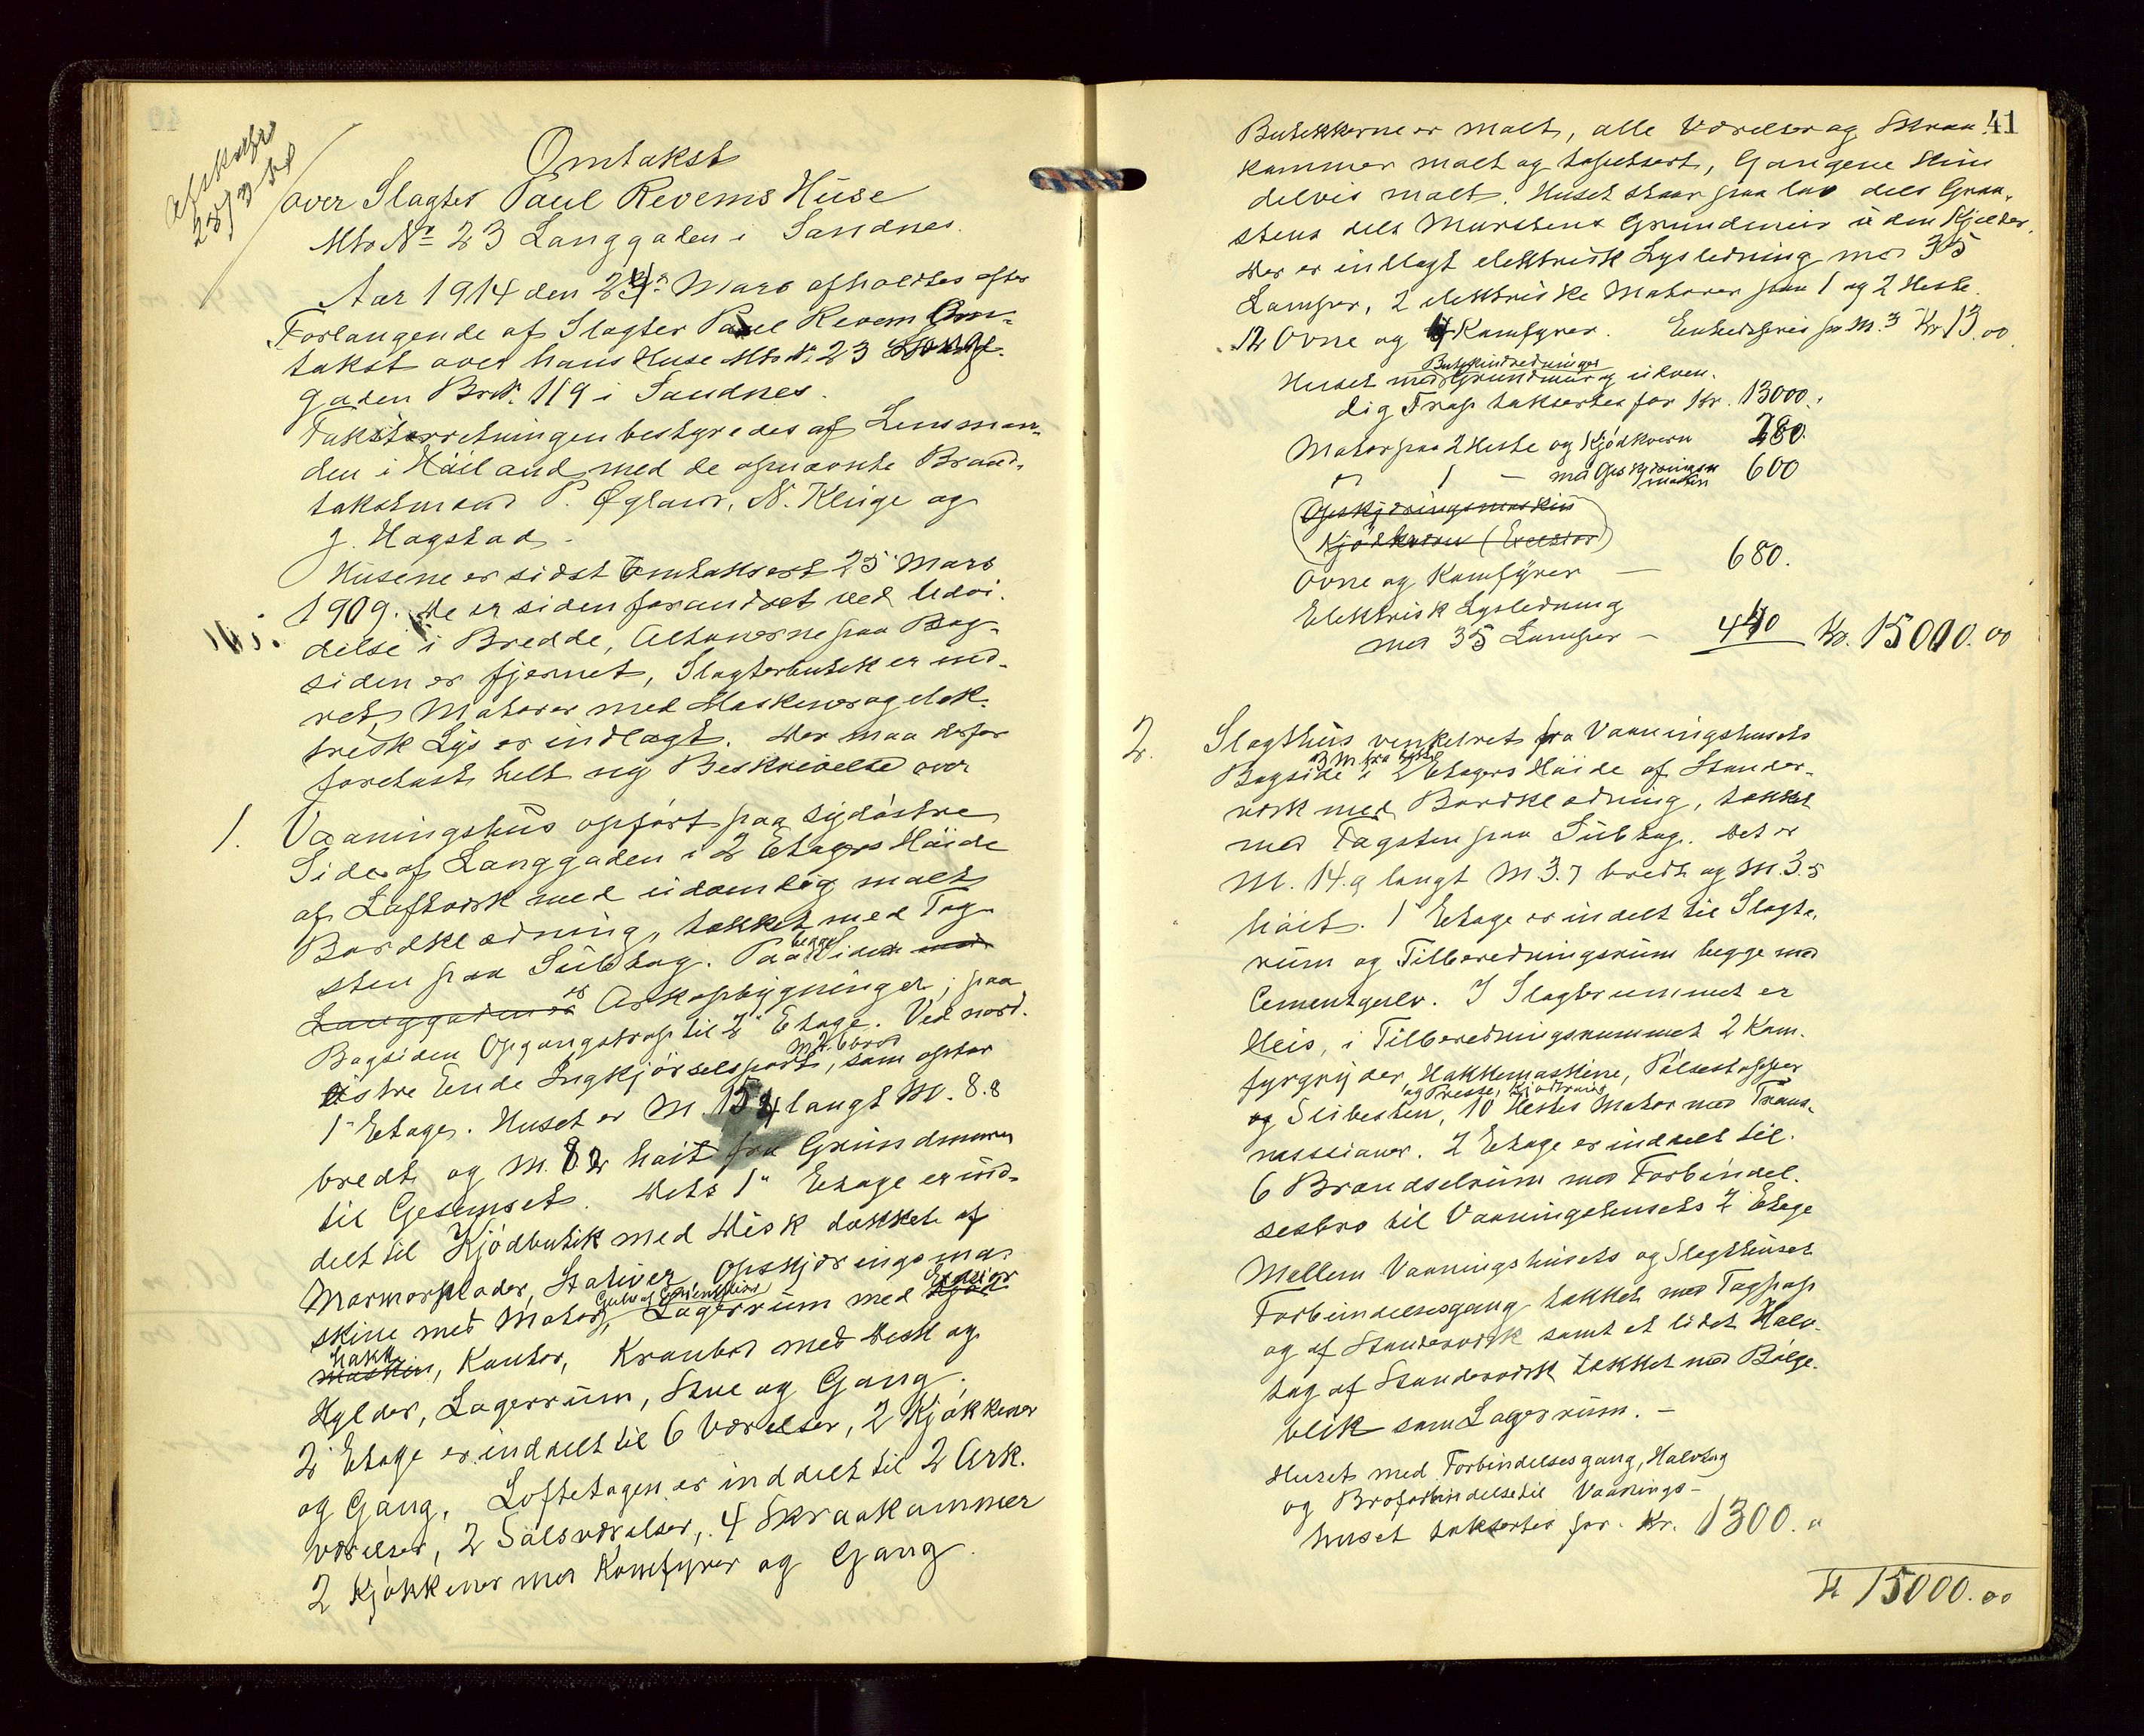 Afskrift
28/3 14
Omtakst
over Slagter Paul Revems Huse
Mtr Nr 23 Langgaden i Sandnes.
Aar 1914 den 24de Mars afholdtes efter
Forlangende af Slagter Paul Revem Om-
takst over hans Huse Mtr. N. 23 Lang-
gaden Br.N. 119 i Sandnes.
Takstforretningen bestyredes af Lensman-
den i Høiland med de opnævnte Brand-
takstmænd P. Øglænd, N. Kluge og
J. Hagstad.
Husene er sidst omtaksert 25 Mars
1909. De er siden forandret ved Udvi-
delse i Bredde, Altanerne paa Bag-
siden er fjernet, Slagterbutik er ind-
ret, Motorer med Maskiner og elek-
trisk Lys er indlagt. Der maa derfor
foretast helt ny Beskrivelse over
1. Vaaningshus opført paa sydøstre
Side af Langgaden i 2 Etagers Høide
af Laftverk med udvendig malt
Bordklædning, tækket med Tag-
sten paa Sutag. Paa begge Sider med
Langgaden er er Arkopbygninger; paa
Bagsiden Opgangstrap til 2' Etage. Ved nord-
østre Ende Indkjørselsport, M 2.6 bred som optar
1' Etage. Huset er M. 15.4 langt M. 8.8
bredt og M. 8.2 høit fra Grundmuren
til Gesimset. Dets 1' Etage er ind-
delt til Kjødbutik med Disk dækket af
Marmorplader, Stativer, Opskjæringsma-
skine med Motor, Gulv af Cementfliser Lagerrum med Kjød Excelsior
maskin hakk, Kontor, Krambod med Disk og
Hylder, Lagerrum, Stue og Gang.
2' Etage er inddelt til 6 Værelser, 2 Kjøkkener
og Gang. Loftetagen er inddelt til 2 Ark-
værelser, 2 Salsværelser, 4 Skraakammer
2 Kjøkkener med Komfyrer og Gang.
41
Butikkerne er malt, alle Værelser og Skraa-
kammer malt og tapetsert, Gangene
delvis malt. Huset staar paa lav dels Graa-
stens dels Murstens Grundmur uden Kjelder.
Der er indlagt elektrisk Lysledning med 35
Lamper, 2 elektriske Motorer paa 1 og 2 Heste.
12 Ovne og 4 Komfyrer. Enhedspris pr M.3 Kr 13.00
Huset med Butikindredninger Grundmur og udven-
dig Trap takseres for Kr. 13000.
Motor paa 2 Heste og Kjødkvern 280.
" 1 — med Opskjæringsmaskin 600
Opskjæringsmaskin
Kjødkvern (Excelsior)
Ovne og Komfyrer — 680.
Elektrisk Lysledning
med 35 Lamper — 440 Kr. 15000.00
2. Slagthus vinkelret fra Vaaningshusets
Bagside i 2 Etagers Høide af Stander-
verk med Bordklædning, tækket
med Tagsten paa Sutag. Det er
M. 14.9 langt M 3.7 bredt og M. 3.5
høit. 1' Etage er indelt til Slagte-
rum og Tilberedningsrum begge med
Cementgulv. I Slagterummet er
Heis, i Tilberedningsrummet 2 Kom-
fyrgryder, Hakkemaskine, Pølsestopper
og Slibesten, og Presse, Kjødkvern 10 Hestes Motor med Trans-
missioner. 2 Etage er inddelt til
6 Brændselrum med Forbindel-
sesbro til Vaaningshusets 2' Etage
Mellem Vaaningshusets og Slagthuset
Forbindelsesgang tækket med Tagpap
og af Standerverk samt et lidet Halv-
tag af Standerverk tækket med Bølge-
blik som Lagerrum. —
Huset med Forbindelsesgang, Halvtag
og Broforbindelse til Vaanings-
huset takseres for Kr. 1300.
Kr 15000.00